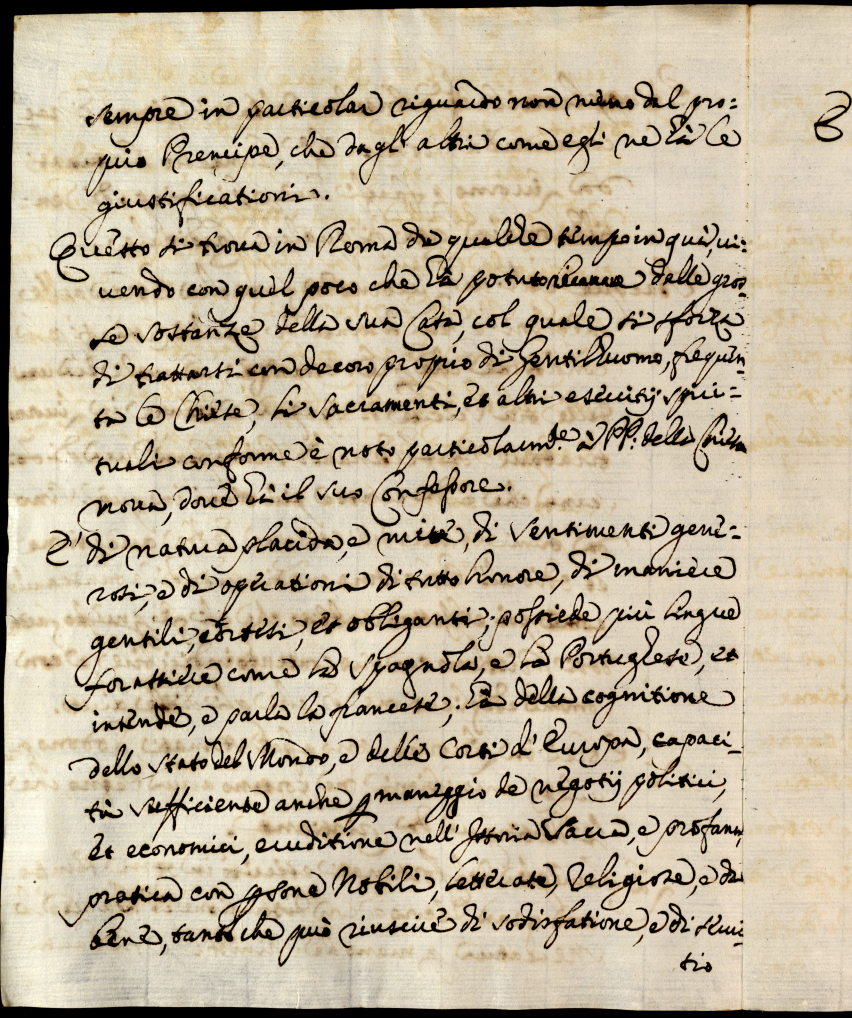 sempre in particolar riguardo non meno dal pro=
prio Prencipe, che dagl'altri come egli ne hà le
giustificationi.
Questo si trova in Roma da qualche tempo in quà, vi=
vendo con quel poco che hà potuto ricavare dalle gros=
se sostanze della sua Casa, col quale si sforza
di trattarsi con decoro proprio di Gentilhuomo, frequen=
ta le Chiese, li Sacramenti, et altri esercitij spiri=
tuali conforme è noto particolarmte. à PP. della Chiesa
nova, dove hà il suo Confessore.
E' di natura placida, e mite, di sentimenti gene=
rosi, e di operationi di tutto honore, di maniere
gentili, cortesi, et obliganti; possiede più lingue
forastiere come la Spagnola, e la Portughese, et
intende, e parla la francese; hà della cognitione
dello stato del Mondo, e delle Corti d'Europa, capaci=
tà sufficiente anche p maneggio de negotij politici,
et economici, eruditione nell'Istoria Sacra, e profana,
pratica con psone Nobili, letterate, Religiose, e da
bene, tanto che può riuscire di sodisfatione, e di servi=
tio